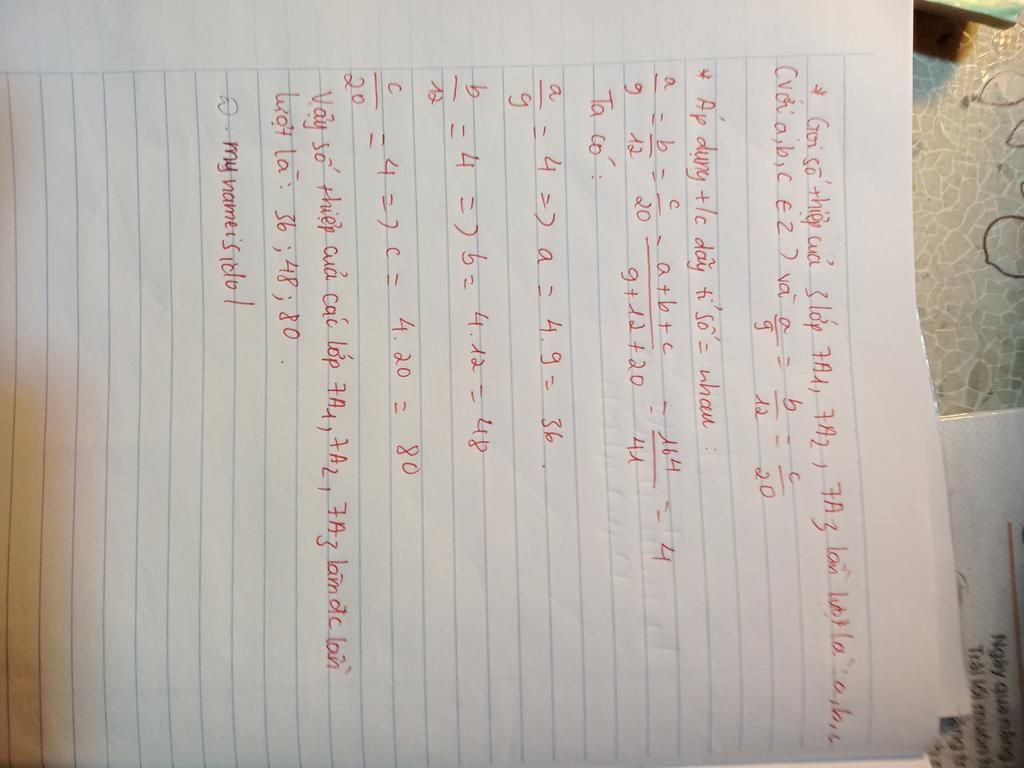 * Gọi số thiệp của 3 lớp 7A1, 7A2, 7A3 lần lượt là: a,b,c
(Với a,b,c ∈ Z) và a/9 = b/12 = c/20
* Áp dụng t/c dãy tỉ số = nhau:
a/9 = b/12 = c/20 = a+b+c/9+12+20 = 164/41 = 4
Ta có:
a/9 = 4 => a = 4.9 = 36.
b/12 = 4 => b = 4.12 = 48
c/20 = 4 => c = 4.20 = 80
Vậy số thiệp của các lớp 7A1, 7A2, 7A3 làm đc lần
lượt là: 36; 48; 80.
mynameisidol
Ngày qua nắng